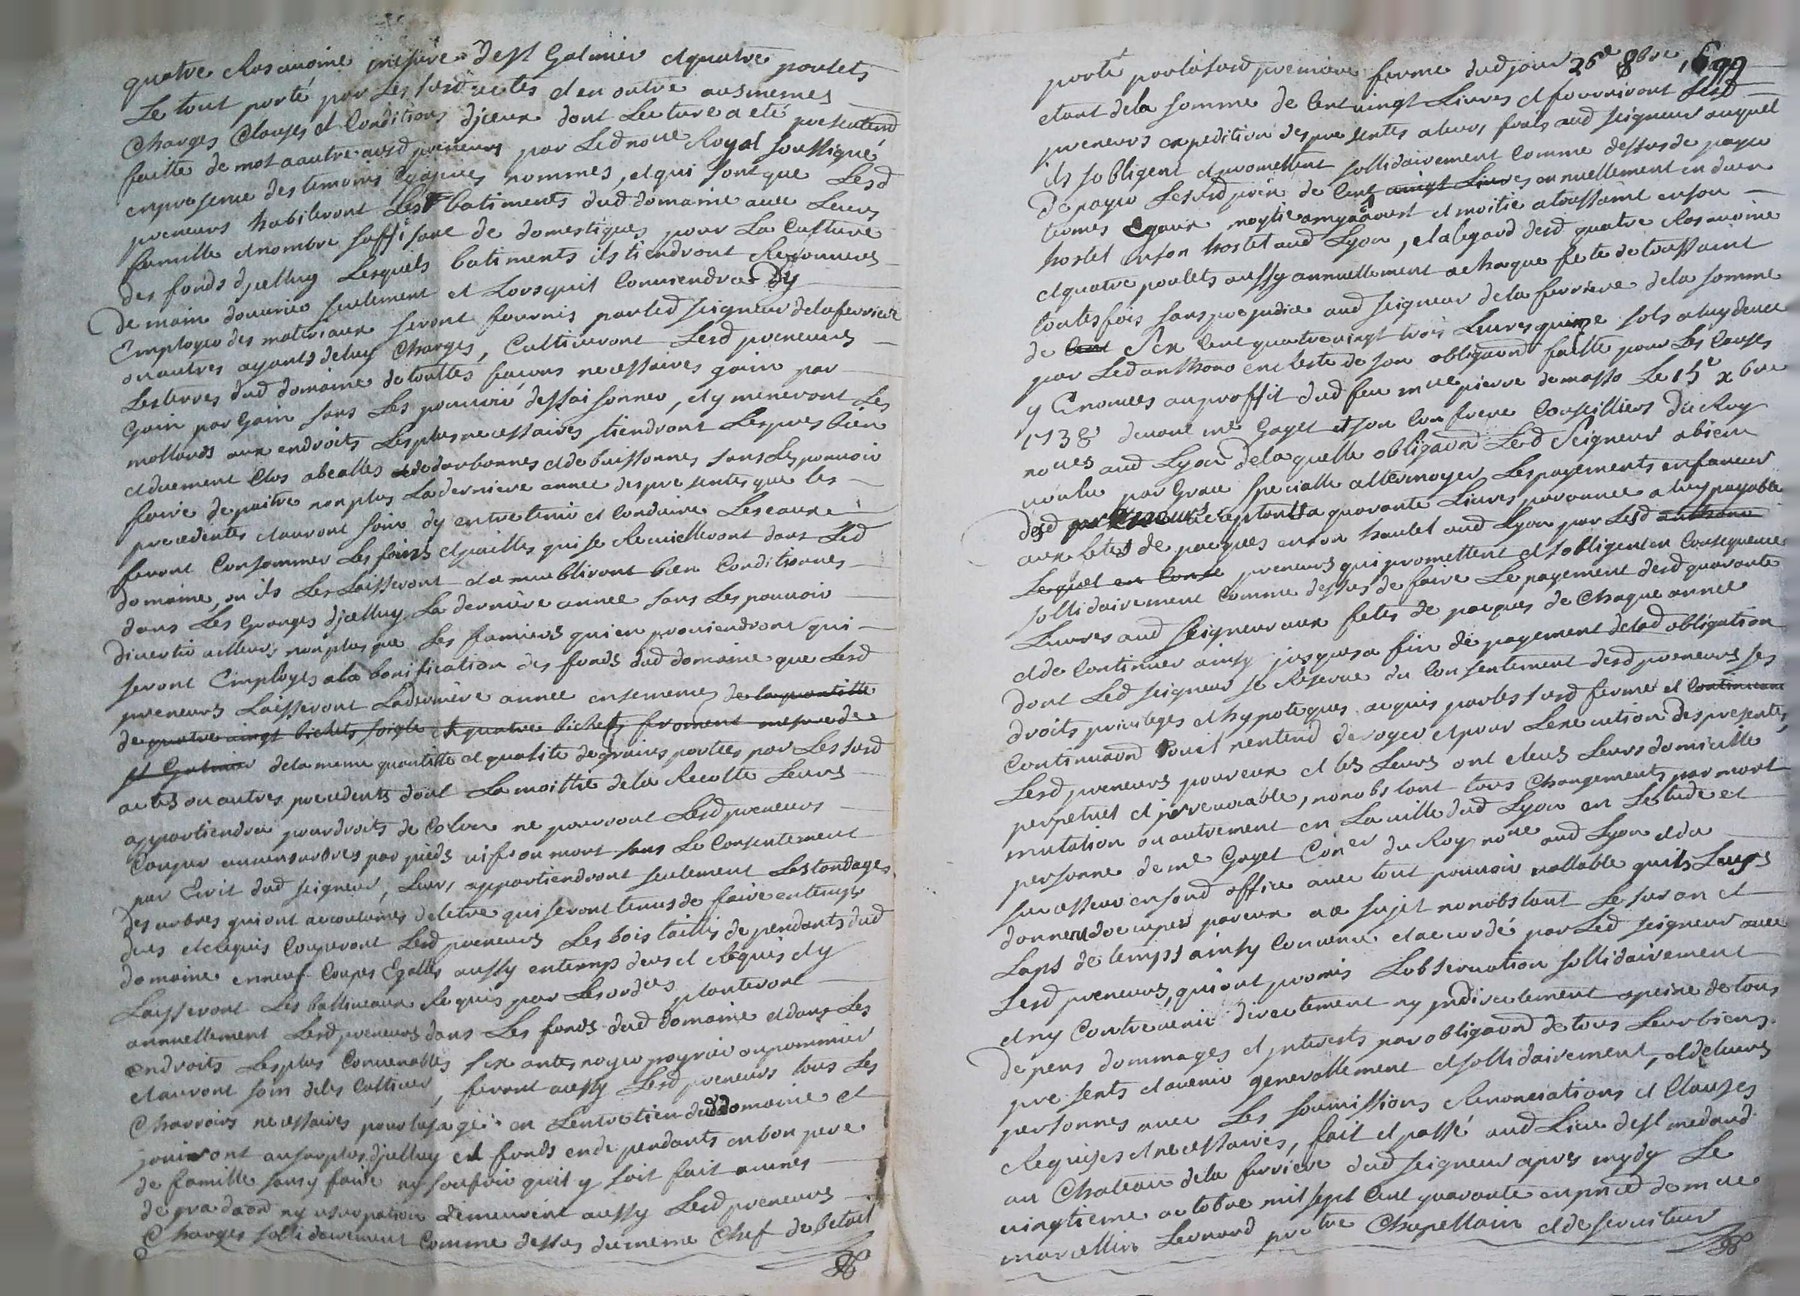 quatre Ras avoine mesure de St Galmier et quatre poulets
Le tout porté par les susd actes et en outre aux mêmes
Charges Clauses et Conditions d'jceux dont Lecture a eté presentemt
faitte de mot a autre ausd preneurs par Led nore Royal soussigné
en presence des temoins Cyapres nommes, et qui sont que Lesd
preneurs habiteront Les batiments dud domaine avec Leurs
famille et nombre suffisant de domestiques pour La Culture
des fonds d'jcelluy Lesquels batiments ils tiendront Recouverts
De main douvrier seulement et Lorsquil Conviendra Dy
Employer des matereaux seront fournis par led seigneur de la ferriere
ou autres ayants de luy Charges, Cultiveront Lesd preneurs
Les terres dud domaine de touttes façons necessaires gain par
Gain par Gain sans Les pouvoir dessaisonner, et y meneront Les
mollards aux endroits Les plus necessaires, tiendront Les pres bien
et duement Clos abeallés et de darbonnes et de buissonnes sans Les pouvoir
faire depaitre non plus La derniere année des presentes que les
precedentes et auront soin dy entretenir et Conduire Les eaux
feront Consommer Les foins et pailles qui se Recuielleront dans Led
domaine, ou ils Les Laisseront et a meubliront bien Conditionnes
dans Les Granges d'jcelluy La derniere année sans Les pouvoir
divertir ailleurs non plus que Les fumiers qui en proviendront qui
seront Employes a la bonification des fonds dud domaine que Lesd
preneurs Laisseront La derniere année ensemencés de la quantitte
de quatre vingt bichets soigle et quatre bichets froment mesure de
St Galmier de la meme quantitte et qualite de graines portées par Les susd
actes ou autres precedents dont La moittie de la Recolte Leurs
appartiendra pour droits de Colon ne pourront Lesd preneurs
Couper aucuns arbres par pieds vif ou mort sans Le Consentement
par Ecrit dud seigneur, Leurs appartiendront seulement Les tondages
des arbres qui ont accoutumés detetre qui seront tenus de faire en temps
dues et Requis Couperont Lesd preneurs Les bois taillis dependants dud
domaine en neuf Coupes Egalles aussy en temps dues et Requis et y
Laisseront Les balliveaux Requis par Les ordces planteront
annuellement Lesd preneurs dans Les fonds dud domaine et dans Les
endroits Les plus Convenables six antes noyer poyrier ou pommier
et auront soin de les Cultiver, feront aussy Lesd preneurs tous Les
Charrois necessaires pour lusage et en Lentretien dud domaine et
jouiront au surplus d'jcelluy et fonds en dependants en bon pere
de famille sans y faire ny souffrir quil y soit fait aucunes
degradaon ny usurpation demeurent aussy Lesd preneurs
Charges sollidairement Comme dessus du meme Chef de betail
porté par la susd premiere ferme dud jour 26e 8bre 1699
etant de la somme de Cent vingt Livres et fourniront Lesd
preneurs expedition des presentes a leurs frais aud seigneur auquel
ils sobligent et promettent sollidairement Comme dessus de payer
De payer Lesusd prix de Cent vingt Livres annuellement en deux
termes Egaux, moytie a mye aoust et moitie a toussaint en son
hostel en son hostel aud Lyon, et a legard desd quatre Ras avoine
et quatre poulets aussy annuellement a chaque fete de toussaint
toutes fois sans prejudice aud seigneur de la ferriere de la somme
de Cent Six Cent quatre vingt trois Livres quinze sols a luy deue
par Led anthono en reste de son obligaon faitte pour Les Causes
y Enoncées au proffit dud feu mre pierre demasso Le 15e xbre
1738 devant me Gayet et son Confrere Conseilliers Du Roy
nores aud Lyon de laquelle obligaon Led Seigneur a bien
voulu par Grace specialle attermoyer Les payements en faveur
desd preneurs acceptants a quarante Livres par année a luy payable
aux fetes de pacques en son houtel aud Lyon par Lesd anthono
Lequel en Conse preneurs qui promettent et sobligent en Consequence
sollidairement Comme dessus de faire Le payement desd quarante
Livres aud seigneur aux fetes de paques de Chaque année
et de Continuer ainsy jusques a fin de payement de lad obligation
dont Led seigneur se Reserve du Consentement desd preneurs ses
droits privileges et hypoteques acquis par les susd fermes et Continuant
Continuaon Sur il nentend deroger et pour Lexecution des presentes,
Lesd preneurs pour eux et les Leurs ont eleus Leurs domicille
perpetuel et jrrevocable, nonobstant tous Changements par mort
mutation ou autrement en La ville dud Lyon en Lestude et
personne de me Gayet Coner du Roy nore aud Lyon et da
successeur en sond office avec tout pouvoir vallable quils Leurs
donnent doccuper pour eux a ce sujet nonobstant Le sur an et
Laps de temps ainsy Convenu et accordé par Led seigneur avec
Lesd preneurs, qui ont promis Lobservation sollidairement
et ny Contrevenir directement ny jndirectement a peine de tous
depens dommages et jnterests par obligaon de tous Leurs biens
presents et avenir generallement et sollidairement, et de leurs
personnes avec Les soumissions Renonciations et Clauses
Requises et necessaires, fait et passé aud Lieu de St medard
au Chateau de la ferriere dud seigneur apres mydy Le
vingtieme octobre mil sept Cent quarante en pnce de mre
marcellin Leonard pretre Chapellain et deserviteur